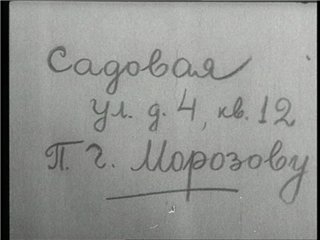 Садовая
ул. д. 4, кв. 12
П. Г. Морозову